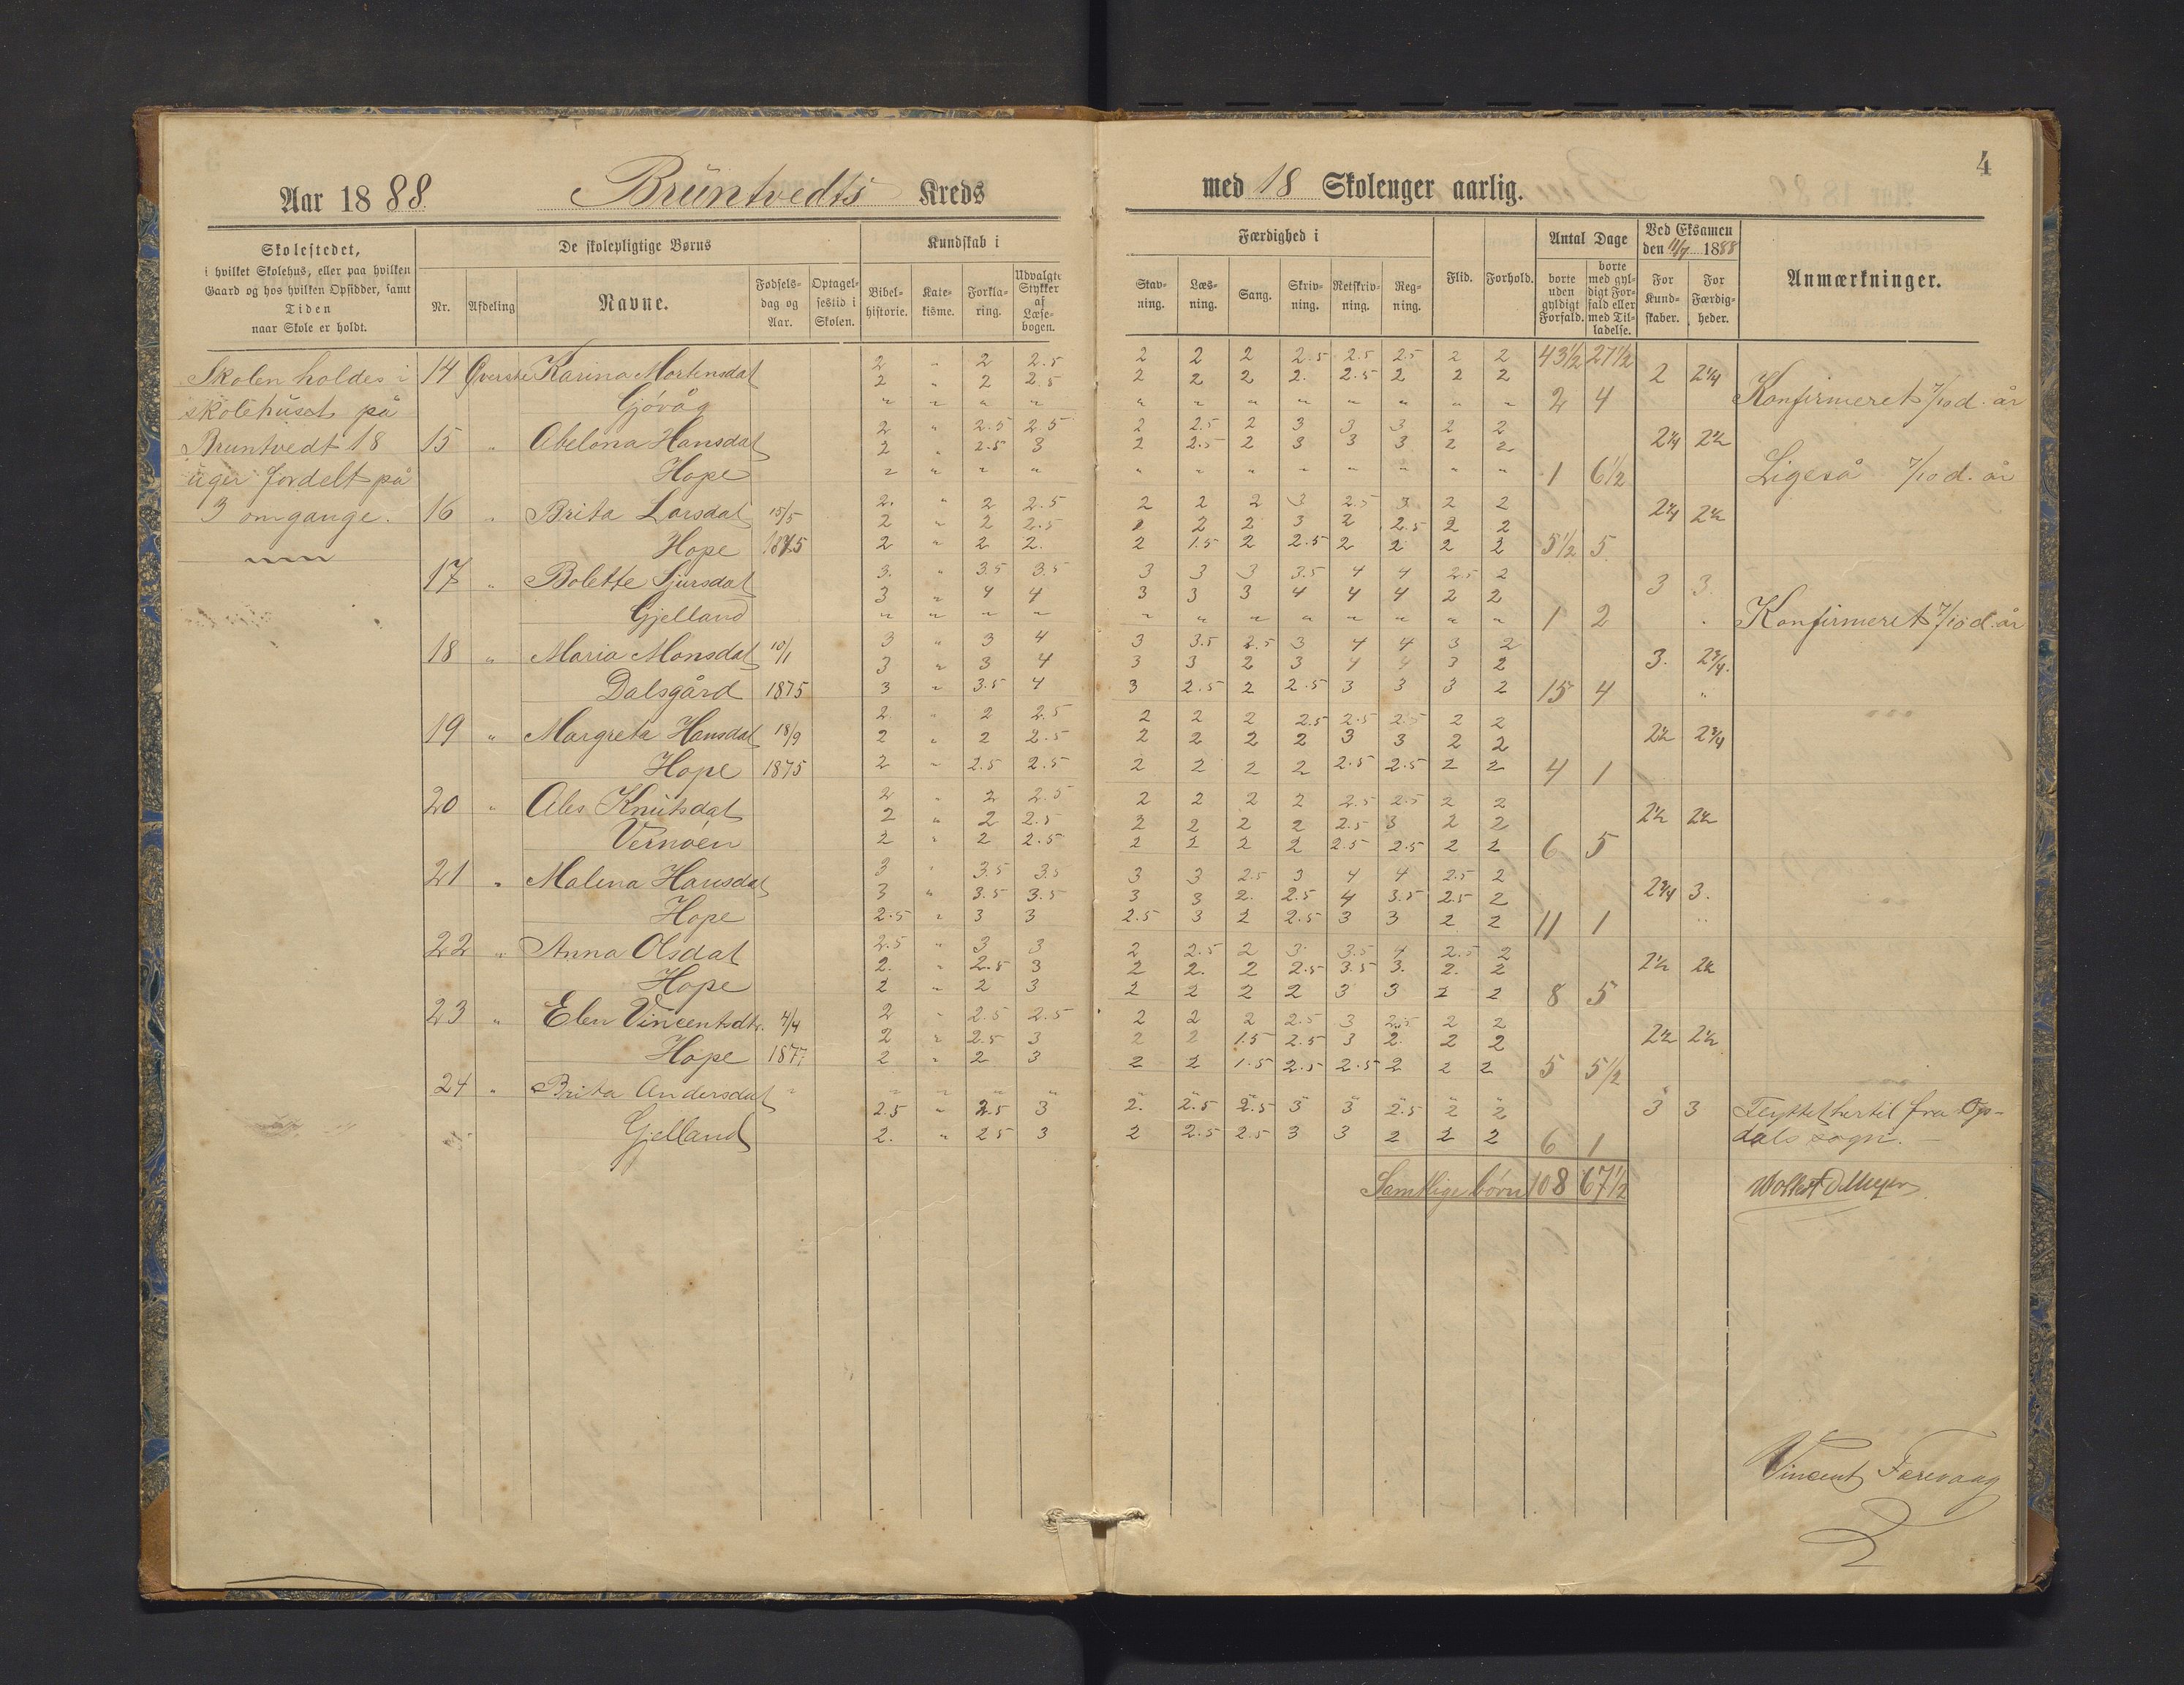 4
Aar 1888 Brüntvedts Kreds
med 18 Skolenger aarlig.
Skolestedet,
i hvilket Skolehus, eller paa hvilken
Gaard og hos hvilken Opsidder, samt
Tiden
naar Skole er holdt.
De skolepligtige Børns
Nr. Afdeling Navne. Fødselsdag og Aar. Optagelsestid i Skolen.
Kundskab i
Bibelhistorie. Katekisme. Forklaring. Udvalgte Stykker af Læsebogen.
Færdighed i
Stavning. Læsning. Sang. Skrivning. Retskrivning. Regning.
Flid. Forhold.
Antal Dage
borte uden gyldigt Forfald. borte med gyldigt Forfald eller med Tilladelse.
Ved Eksamen
den 11/7 1888
For Kundskaber. For Færdigheder.
Anmærkninger.
Skolen holdes i
skolehüset på
Bruntvedt 18
üger fordelt på
3 omgange.
14 Øverste Karina Mortensdat 2 " 2 2.5 2 2 2 2.5 2.5 2.5 2 2 43½ 27½
2 " 2 2.5 2 2 2 2. 2.5 2 2 2 2 2¼
Gjøvåg " " " " " " " " " " " " 2 4 Konfirmeret 7/10 d. år
15 " Abelona Hansdat 2 " 2.5 2.5 2 2.5 2 3 3 3 2 2
2 " 2.5 3 2 2.5 2 3 3 3 2 2 2¼ 2½
Hope " " " " " " " " " " " " 1 6½ Ligeså 7/10 d. år
16 " Brita Larsdat 15/5 2. " 2 2.5 2 2 2 3 2.5 3 2 2
2 " 2 2.5 2 2 2 3 2 2.5 2 2 2¼ 2½
Hope 1875 2 " 2 2. 2 1.5 2 2.5 2 2 2 2 5½ 5
17 " Bolette Sjursdat 3. " 3.5 3.5 3 3 3 3.5 4 4 2.5 2
3 " 4 4 3 3 3 4 4 4 2 2 3 3.
Gjelland " " " " " " " " " " " " 1 2 Konfirmeret 7/10 d. år
18 " Maria Monsdat 10/1 3 " 3 4 3 3.5 2.5 3 4 4 3 2
3 " 3 4 3 3 2 3 4 4 3 2 3. 2¾.
Dalsgård 1875 3 " 3.5 4 3 2.5 2 2.5 3 3 3 2 15 4
19 " Margreta Hansdat 18/9 2 " 2 2.5 2 2 2 2.5 2.5 2.5 2 2
2 " 2 2.5 2 2 2 2 3 3 2 2 2½ 2¾
Hope 1875 2 " 2.5 2.5 2 2 2 2 2.5 2.5 2 2 4 1
20 " Ales Knütsdat 2 " 2 2.5 2 2 2 2 2.5 2.5 2 2
2 " 2 2.5 2 2 2 2 2.5 3 2 2 2½ 2½
Vernøen 2 " 2 2.5 2 2 2 2 2.5 2.5 2 2 6 5
21 " Malena Hansdat 3 " 3.5 3.5 3 3 2.5 3 4 4 2.5 2
3 " 3.5 3.5 3 3 2. 2.5 4 3.5 2.5 2 2¾ 3.
Hope 2.5 " 3 3 2.5 3 2 2.5 3 3 2 2 11 1
22 " Anna Olsdat 2.5 " 3 3 2 2.5 2 3 3.5 4 2.5 2
2. " 2.5 3 2 2. 2 2.5 3.5 3. 2. 2 2½ 2½
Hope 2 " 2 3 2 2 2 2 3 3 2 2 8 5
23 " Elen Vincentsdtr. 4/4 2 " 2.5 2.5 2 2 2 2.5 3 2.5 2 2
2 " 2.5 3 2 2 1.5 2.5 3 2. 2 2 2½ 2½
Hope 1877 2 " 2 3 2 2 1.5 2.5 2.5 2 2 2 5 5½
24 " Brita Andersdat " " " " "
2.5 " 2.5 3 2. 2.5 2.5 3 3 2.5 2 2 3 3 Flyttet hertil fra Op-
Gjelland 2. " 2.5 3 2 2.5 2.5 3 3 2 2 2 6 1 dals sogn.
Samtlige børn 108 67½
Wollert D Meyer
Vincent Færevaag